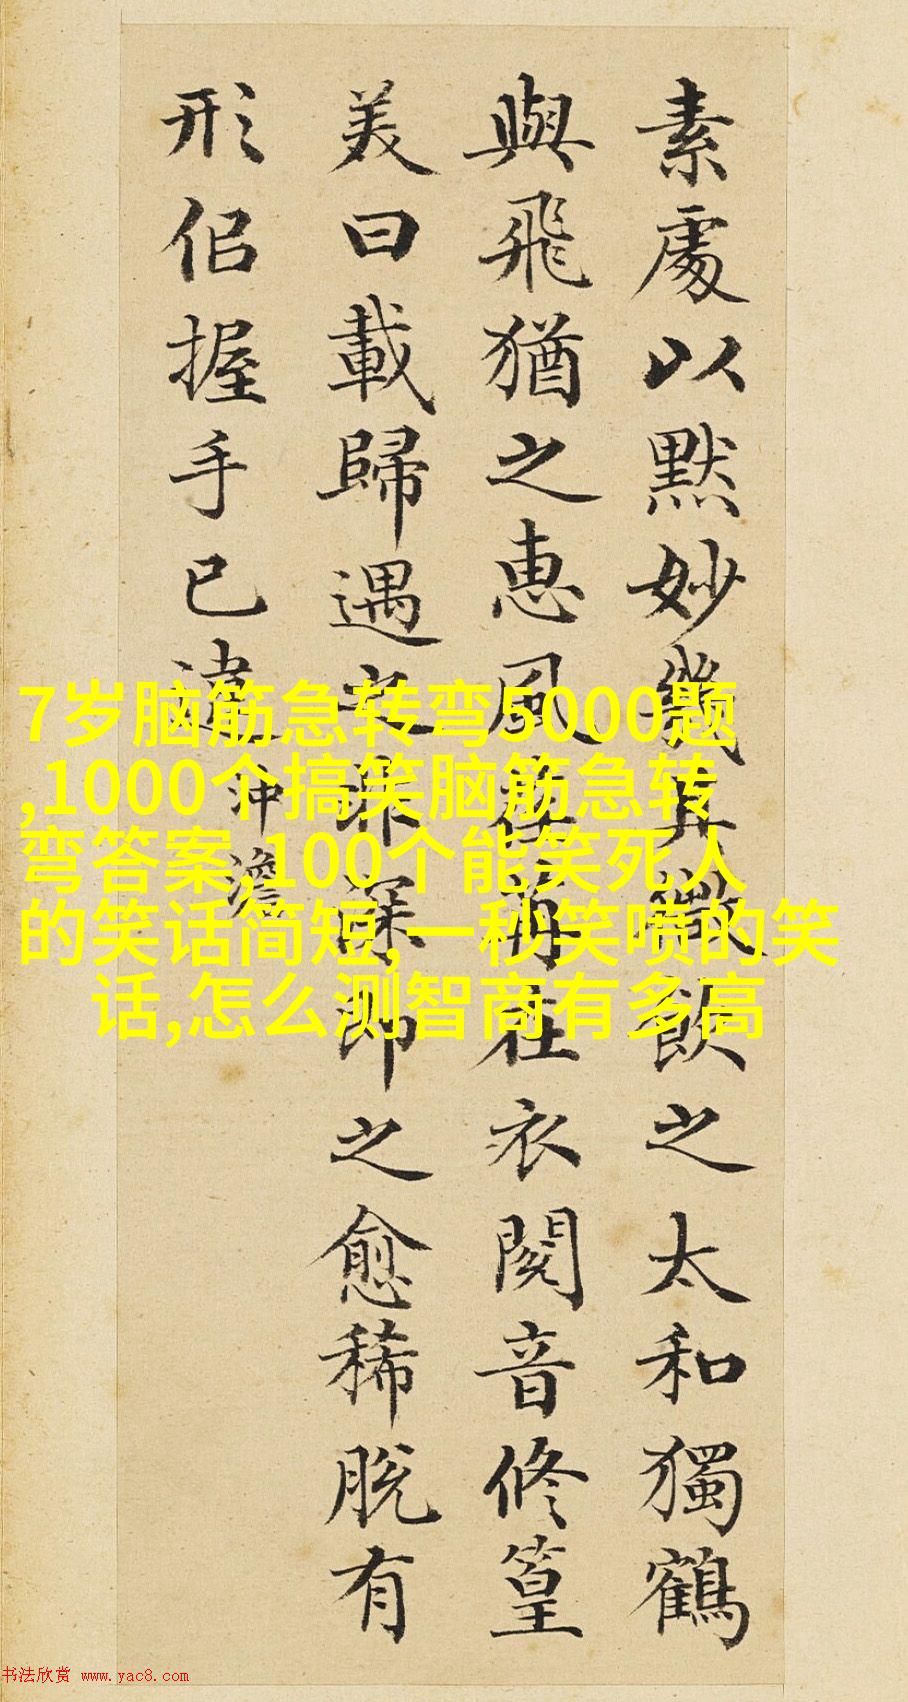 素處以默妙幾其微飲之太和獨鶴
與飛猶之惠風荏苒在衣閱音修篁
美曰載歸遇之匪深即之愈稀脫有
形佀握手已違
冲澹
7岁脑筋急转弯5000题
,1000个搞笑脑筋急转
弯答案,100个能笑死人
的笑话简短,一秒笑喷的笑
话,怎么测智商有多高
书法欣赏 www.yac8.com